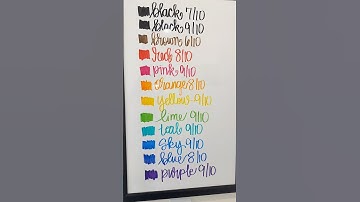 black 7/10
black 9/10
brown 6/10
Red 8/10
pink 9/10
Orange 8/10
yellow 9/10
lime 9/10
teal 9/10
Sky 9/10
blue 8/10
purple 9/10